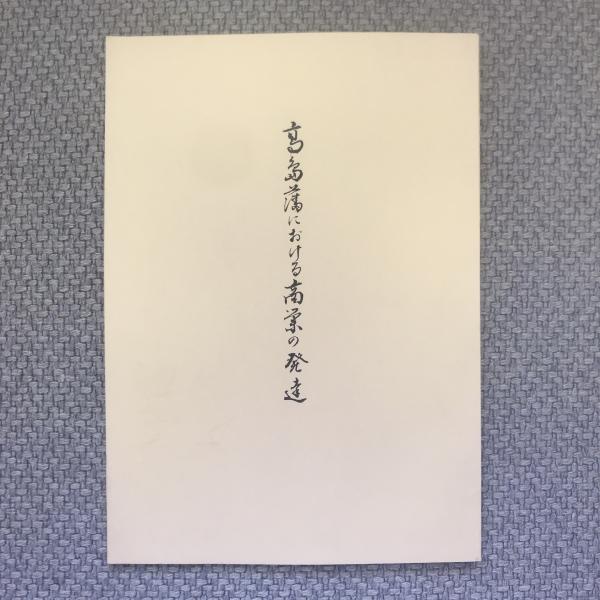 高島藩における商業の発達